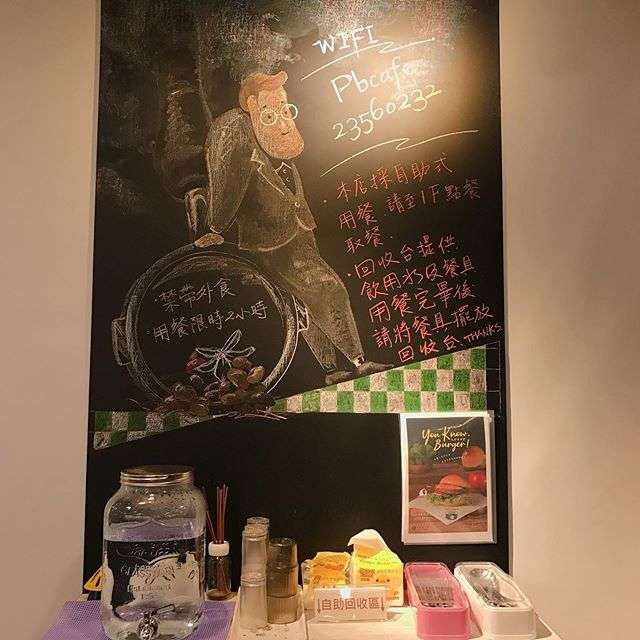 WIFI
Pbcafe
23560232
·本店採自助式
用餐.請至1F點餐
取餐.
·回收台提供
飲用水及餐具
用餐完畢後
請將餐具擺放
回收台.THANKS.
·禁帶外食
·用餐限時2小時
You Know,
Burger!
自助回收區